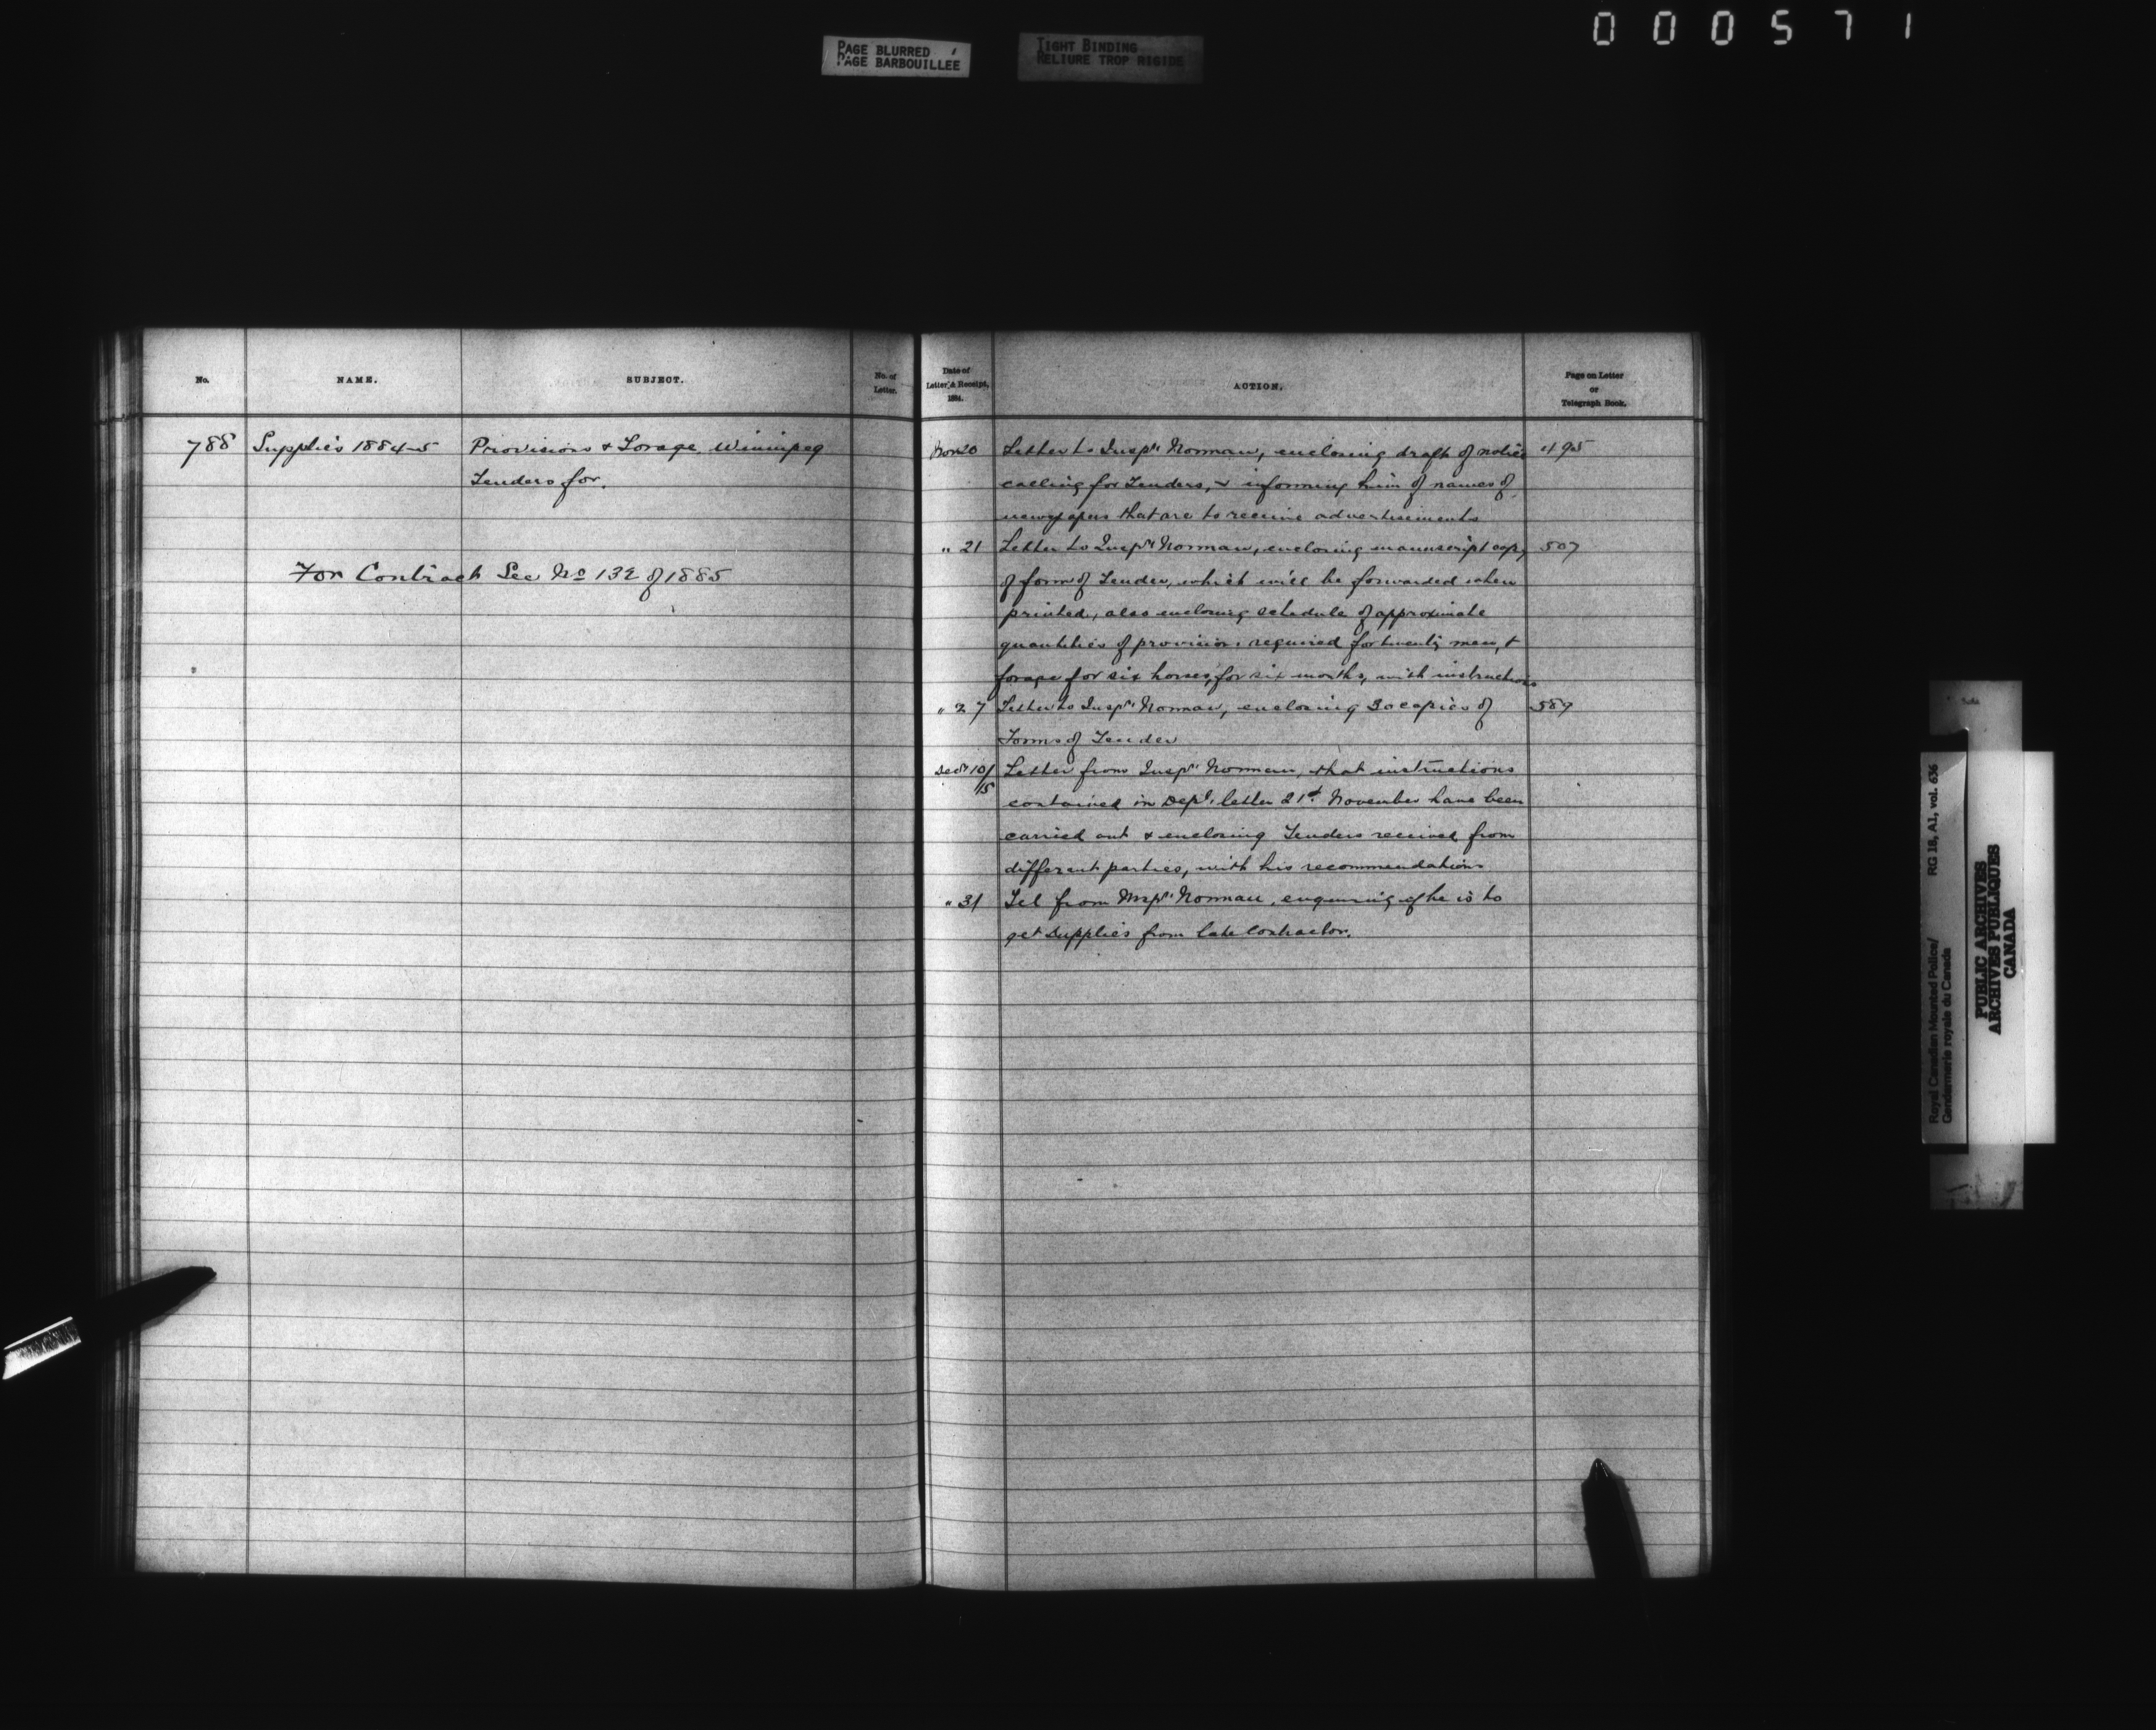 000571
PAGE BLURRED
PAGE BARBOUILLEE
TIGHT BINDING
RELIURE TROP RIGIDE
No.
NAME.
SUBJECT.
No. of
Letter.
788 Supplies 1884-5 Provisions & Forage Winnipeg
Tenders for.
For Contract See No 132 of 1885
Date of
Letter & Receipt,
1884.
ACTION.
Page on Letter
or
Telegraph Book.
Nov 20 Letter to Inspr Norman, enclosing draft of notice 495
calling for Tenders, & informing him of names of
newspapers that are to receive advertisements
" 21 Letter to Inspr Norman, enclosing manuscript copy 507
of form of Tender, which will be forwarded when
printed, also enclosing schedule of approximate
quantities of provisions required for twenty men, &
forage for six horses, for six months, with instructions
" 27 Letter to Inspr Norman, enclosing 30 copies of 589
Forms of Tender
Decr 10/15 Letter from Inspr Norman, that instructions
contained in Dept. letter 21st November have been
carried out & enclosing Tenders received from
different parties, with his recommendations
" 31 Tel from Inspr Norman, enquiring if he is to
get supplies from late contractor.
Royal Canadian Mounted Police/
Gendarmerie royale du Canada
RG 18, A1, vol. 636
PUBLIC ARCHIVES
ARCHIVES PUBLIQUES
CANADA